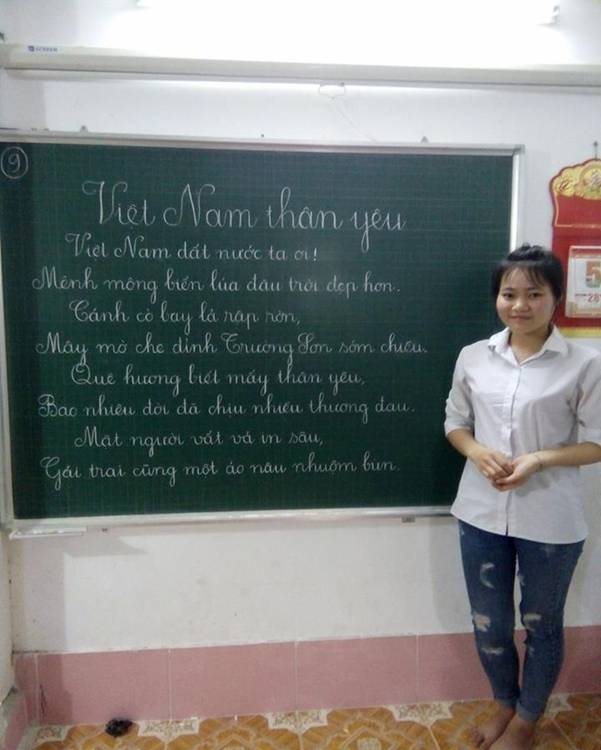 SCREEN
9
Việt Nam thân yêu
Việt Nam đất nước ta ơi!
Mênh mông biển lúa đâu trời đẹp hơn.
Cánh cò bay lả rập rờn,
Mây mờ che đỉnh Trường Sơn sớm chiều.
Quê hương biết mấy thân yêu,
Bao nhiêu đời đã chịu nhiều thương đau.
Mặt người vất vả in sâu,
Gái trai cũng một áo nâu nhuộm bùn.
5
28